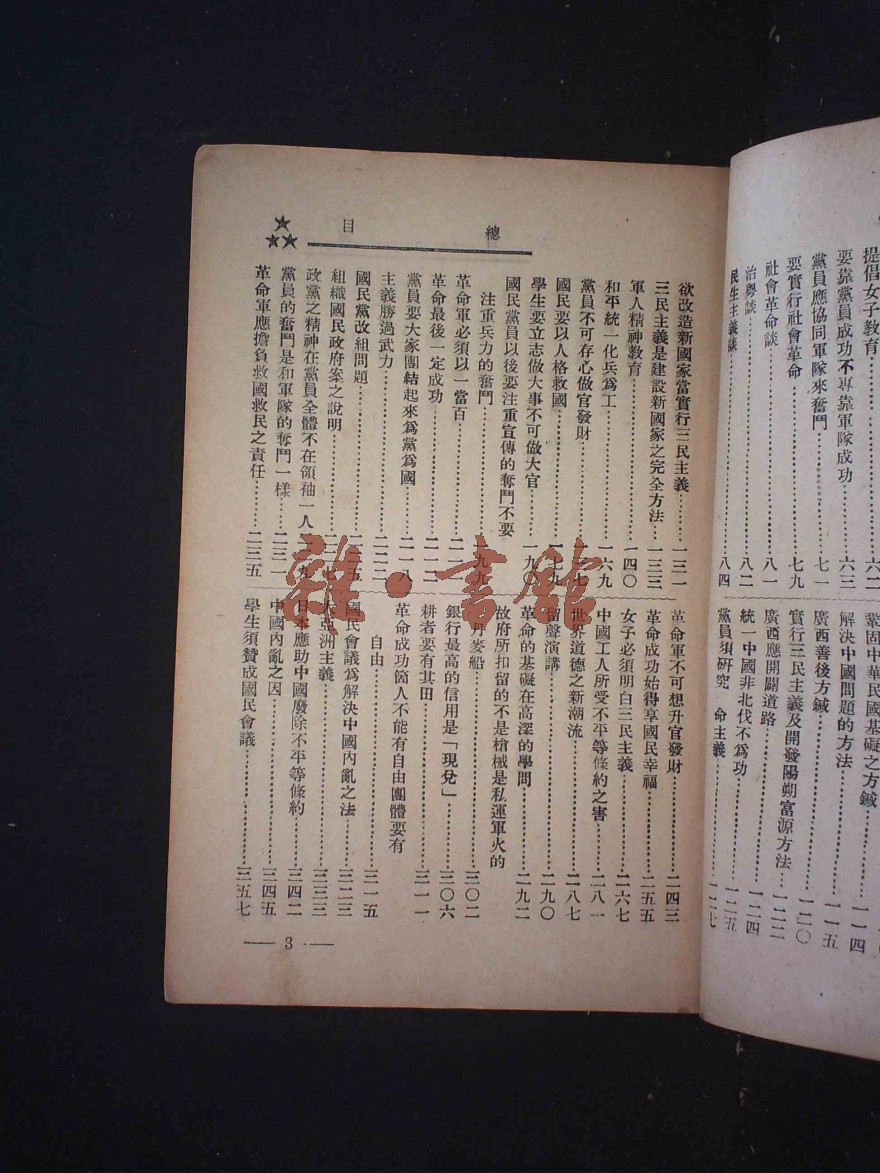 提倡女子教育……六二
要靠黨員成功不專靠軍隊成功……六三
黨員應協同軍隊來奮鬥……七一
要實行社會革命……七九
社會革命談……八一
治粵談……八二
民生主義談……八四
鞏固中華民國基礎之方鍼
解決中國問題的方法……一一四
廣西善後方鍼……一一五
實行三民主義及開發陽朔富源方法……一二〇
廣西應開闢道路……一二二
統一中國非北伐不爲功……一二四
黨員須研究 命主義……一二五
一二七
總目
欲改造新國家當實行三民主義……一三一
三民主義是建設新國家之完全方法……一三三
軍人精神教育……一四〇
和平統一化兵爲工……一六九
黨員不可存心做官發財
國民要以人格救國……一七九
學生要立志做大事不可做大官……一九〇
國民黨員以後要注重宣傳的奪鬥不要
注重兵力的奮鬥……一九九
革命軍必須以一當百
革命最後一定成功……二一二
黨員要大家團結起來爲黨爲國……二一八
主義勝過武力……二二二
國民黨改組問題
組織國民政府案之說明
政黨之精神在黨員全體不在領袖一人
黨員的奮鬥是和軍隊的奪鬥一樣……二三一
革命軍應擔負救國救民之責任……二三五
革命軍不可想升官發財……二四三
革命成功始得享國民幸福……二五五
女子必須明白三民主義……二六七
中國工人所受不平等條約之害……二八一
世界道德之新潮流……二八七
留聲演講……二九〇
革命的基礎在高深的學問……二九二
故府所扣留的不是槍械是私運軍火的
丹麥船……三〇二
銀行最高的信用是「現兌」……三〇六
耕者要有其田……三一一
革命成功箇人不能有自由團體要有
自由……三一五
國民會議爲解決中國內亂之法……三二三
大亞洲主義……三三三
日本應助中國廢除不平等條約……三四二
中國內亂之因……三四五
學生須贊成國民會議……三五七
— 3 —
雜·書館